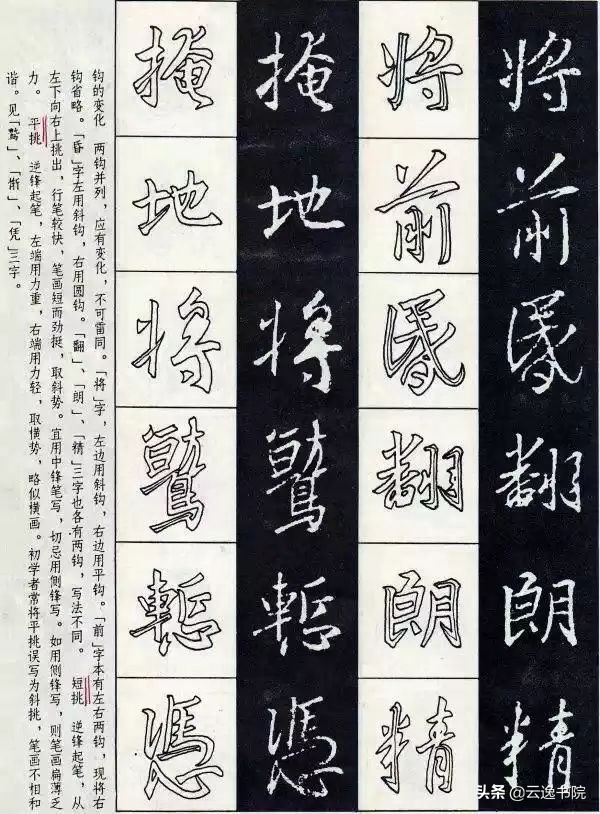 将前昬翻朗精
将前昬翻朗精
掩地将鷲慙憑
掩地将鷲慙憑
钩的变化　两钩并列，应有变化，不可雷同。「将」字，左边用斜钩，右边用平钩。「前」字本有左右两钩，现将右
钩省略。「昏」字左用斜钩，右用圆钩。「翻」、「朗」、「精」三字也各有两钩，写法不同。　短挑　逆锋起笔，从
左下向右上挑出，行笔较快，笔画短而劲挺，取斜势。宜用中锋笔写，切忌用侧锋写。如用侧锋写，则笔画扁薄乏
力。　平挑　逆锋起笔，左端用力重，右端用力轻，取横势，略似横画。初学者常将平挑误写为斜挑，笔画不相和
谐。见「鹫」、「惭」、「凭」三字。
头条 @云逸书院